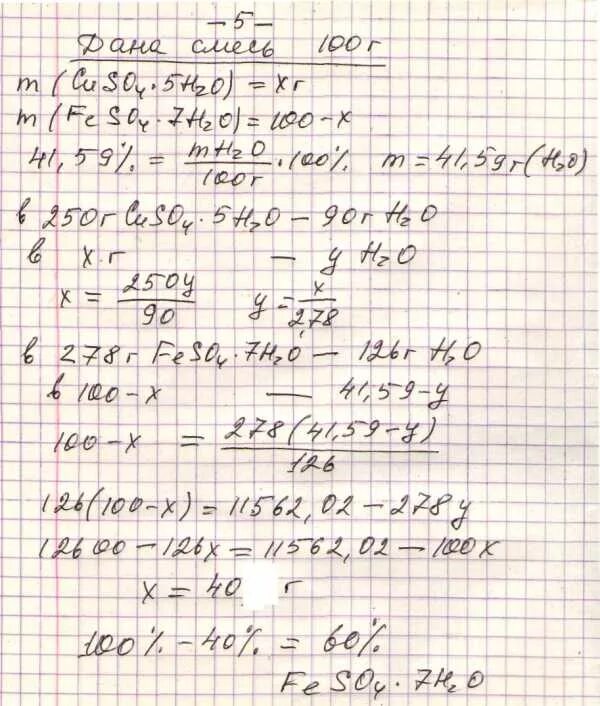 – 5 –
Дана смесь 100г
m (CuSO₄·5H₂O) = x г
m (FeSO₄·7H₂O) = 100 – x
41,59% = mH₂O / 100г · 100% m = 41,59г (H₂O)
в 250г CuSO₄·5H₂O – 90г H₂O
в x г – y H₂O
x = 250y / 90 y = x / 2,78
в 278г FeSO₄·7H₂O – 126г H₂O
в 100 – x – 41,59 – y
100 – x = 278(41,59 – y) / 126
126(100 – x) = 11562,02 – 278y
12600 – 126x = 11562,02 – 100x
x = 40 г
100% – 40% = 60%
FeSO₄·7H₂O